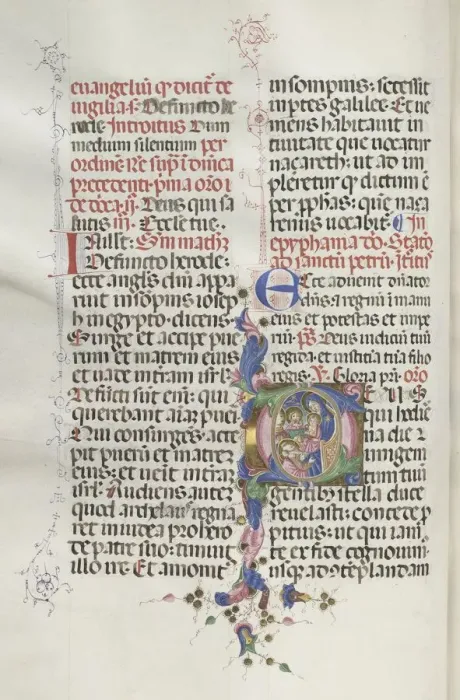 euangeliū qđ dicit̄ ꝛe
uigilia. s. Defuncto he
rode. Introitus Dum
medium silentium per
ordinē. Re sup̄ i dn̄ica
precedenti. p̄ma oro i
de Deus qui sa
lutis iii. Eccle tue.
In illt. Sm matħz
Defuncto herode:
ecce angl̄s dn̄i appa
ruit in sōpnis ioseph
h in egypto. dicens.
Surge et accipe pue
rum et matrem eius
et uade in trām isrl.
Defūcti sunt eni: qui
querebant aīaȝ pueri
Qui consurgēs. acce
pit puerū et matrez
eius: et uēit in trāȝ
isrl. Audiens autez
quod archelaus regna
ret in iudea pro hero
de patre suo: timuit
illo ire. Et amonit
in sompnis: secessit
in ptes galilee. Et ue
niens habitauit in
ciuitate que uocatur
naçareth: ut ad im
pleretur qđ dictum ē
per p̄phas: qm̄ naça
renus uocabit̄. In
epyphania dn̄i. Statō
ad sanctū petrū. Itītus
Ecce aduenit dn̄ator
dn̄s: ⁊ regnū i manu
eius et potestas et impe
rium. ps̄ Deus iudiciū tuū
regi da: et iusticiā tuā filio
regis. Gloria pri. oro
DEUS
qui hodie
rna die u
nigeni
tum tuū
gentibus stella duce
reuelasti: concede p
pitius: ut qui iam
te ex fide cognouim
usq; ad cōtēplandam